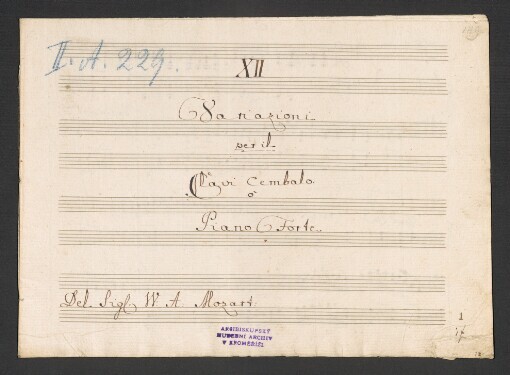 II. A. 229.
XII
Variazioni
per il
Clavi Cembalo
o
Piano Forte
Del Sigl W. A. Mozart
1
ARCIBISKUPSKÝ
HUDEBNÍ ARCHIV
V KROMĚŘÍŽI